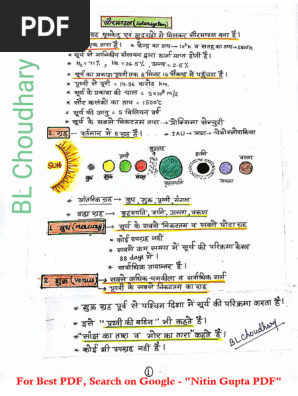 PDF
BL Choudhary
सौरमण्डल (Solarsystem)
धूमकेतु एवं क्षुद्रग्रहों से मिलकर सौरमण्डल बना है।
एक तारा है। • केन्द्र का ताप → 10⁸ K व सतह का ताप → 5800 K
• सूर्य में नाभिकीय संलयन द्वारा ऊर्जा प्राप्त होती है।
• H₂ = 71% , He = 26.5% , अन्य = 2.5%
• सूर्य का प्रकाश पृथ्वी तक 8 मिनट 16 सेकण्ड में पहुंचता है।
• पृथ्वी से दूरी = 14.96 करोड़ Km.
• सूर्य के प्रकाश की चाल = 3×10⁸ m/s
• सौर कलंकों का ताप = 1500°C
• सूर्य की आयु = 5 बिलियन वर्ष
• सूर्य के सबसे निकटतम तारा → प्रोक्सिमा सेन्चुरी
2. ग्रह → वर्तमान में 8 ग्रह हैं। • IAU →
SUN
बुध
शुक्र
पृथ्वी
मंगल
बृहस्पति
शनि
अरुण
वरुण
आंतरिक ग्रह → बुध, शुक्र, पृथ्वी, मंगल
• बाह्य ग्रह → बृहस्पति, शनि, अरुण, वरुण
1. बुध (Mercury) → सूर्य के सबसे निकटतम व सबसे छोटा ग्रह
• कोई उपग्रह नहीं
• सबसे कम समय में सूर्य की परिक्रमा केवल
88 days में ।
• सर्वाधिक तापान्तर है।
2. शुक्र (Venus) → सबसे अधिक चमकीला व सर्वाधिक गर्म
→ पृथ्वी के सबसे निकटतम का ग्रह
• शुक्र ग्रह पूर्व से पश्चिम दिशा में सूर्य की परिक्रमा करता है।
• इसे "पृथ्वी की बहिन" भी कहते हैं।
• "सांझ का तारा व भोर का तारा" कहते हैं।
• कोई भी उपग्रह नहीं है।
BL choudhary
1
For Best PDF, Search on Google - "Nitin Gupta PDF"